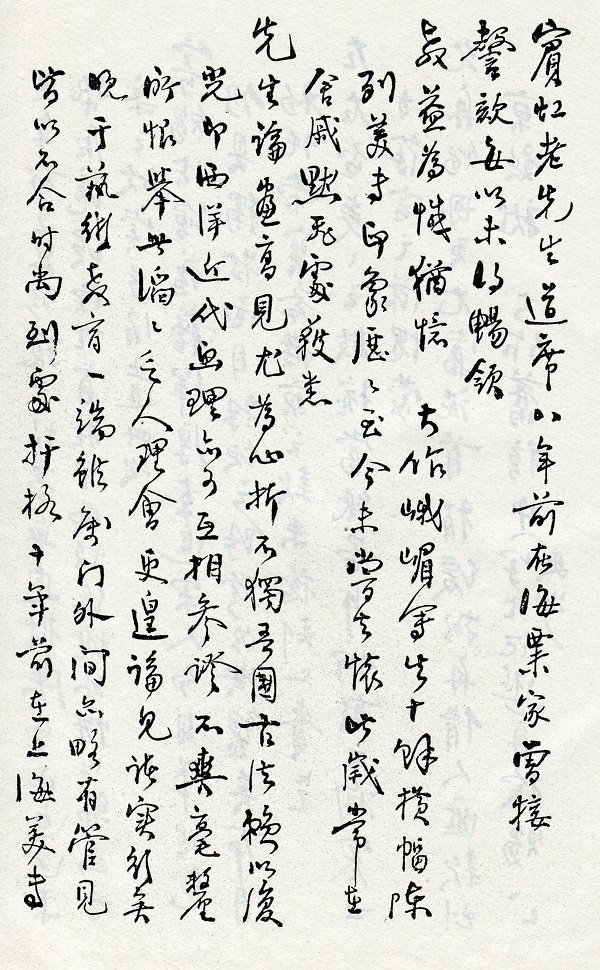 賓虹老先生道席八年前在海粟家曾接
謦欬每以未得暢領
教益為憾猶憶 大作峨嵋寫生十餘橫幅陳
列美專印象歷〻至今未嘗去懷比歲常在
舍戚默飛處獲悉
先生論畫高見尤為心折不獨吾國古法賴以復
光即西洋近代畫理亦可互相參證不爽毫釐
所恨舉世滔〻乏人理會更遑論見諸實行矣
晚于藝術教育一端雖屬門外間亦略有管見
皆以不合時尚到處扞格十年前在上海美專